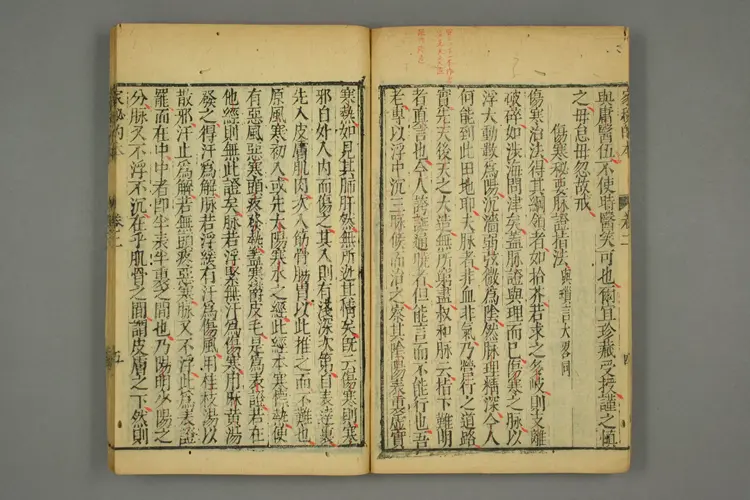 與庸醫伍不使時醫笑可也爾宜珍藏受授謹之慎
之毋怠毋忽故戒
傷寒秘要脉證指法
傷寒治法得其綱領者如拾芥若求之多岐則支離
破碎如涉海問津矣蓋脉證與理而已傷寒之脉以
浮大動數為陽沉濇弱弦微為陰然脉理精深今人
何能到此田地耶夫脉者非血非氣乃營行之道路
實先天後天之大造無所窮盡叔和脉云指下難明
者重言也今人誇詳通曉者但能言而不能行也吾
老專以浮中沉三脉候而治之察其陰陽表裏虛實
寒熱如見其肺肝然無所逃其情矣既云傷寒則寒
邪自外入内而傷之其入則有淺深次第自表達裏
先入皮膚肌肉次入筋骨腸胃以此推之而不難也
原風寒初入或先太陽寒水之經此經本寒標熱便
有惡風惡寒頭疼發熱蓋寒鬱皮毛是為表證若在
他經則無此證矣脉若浮緊無汗為傷寒用麻黄湯
發之得汗為解脉若浮緩有汗為傷風用桂枝湯以
散邪汗止為解若無頭疼惡寒脉又不浮此為表證
罷而在中中者即半表半裏之間也乃陽明少陽之
分脉又不浮不沉在乎肌骨之間謂皮膚之下然則
家秘的本
卷二
五
家秘的本
卷二
四